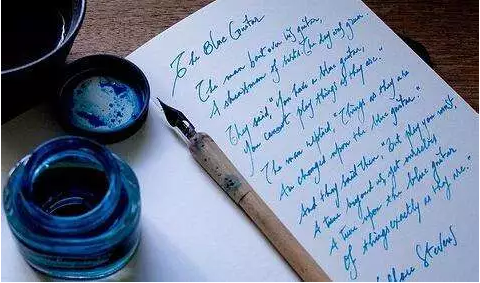 The Blue Guitar
The man bent over his guitar,
A shearsman of sorts. The day was green.
They said, "You have a blue guitar,
You cannot play things as they are."
The man replied, "Things as they are
Are changed upon the blue guitar."
And they said then, "But play you must,
A tune beyond us, yet ourselves
A tune upon the blue guitar
Of things exactly as they are."
Wallace Stevens